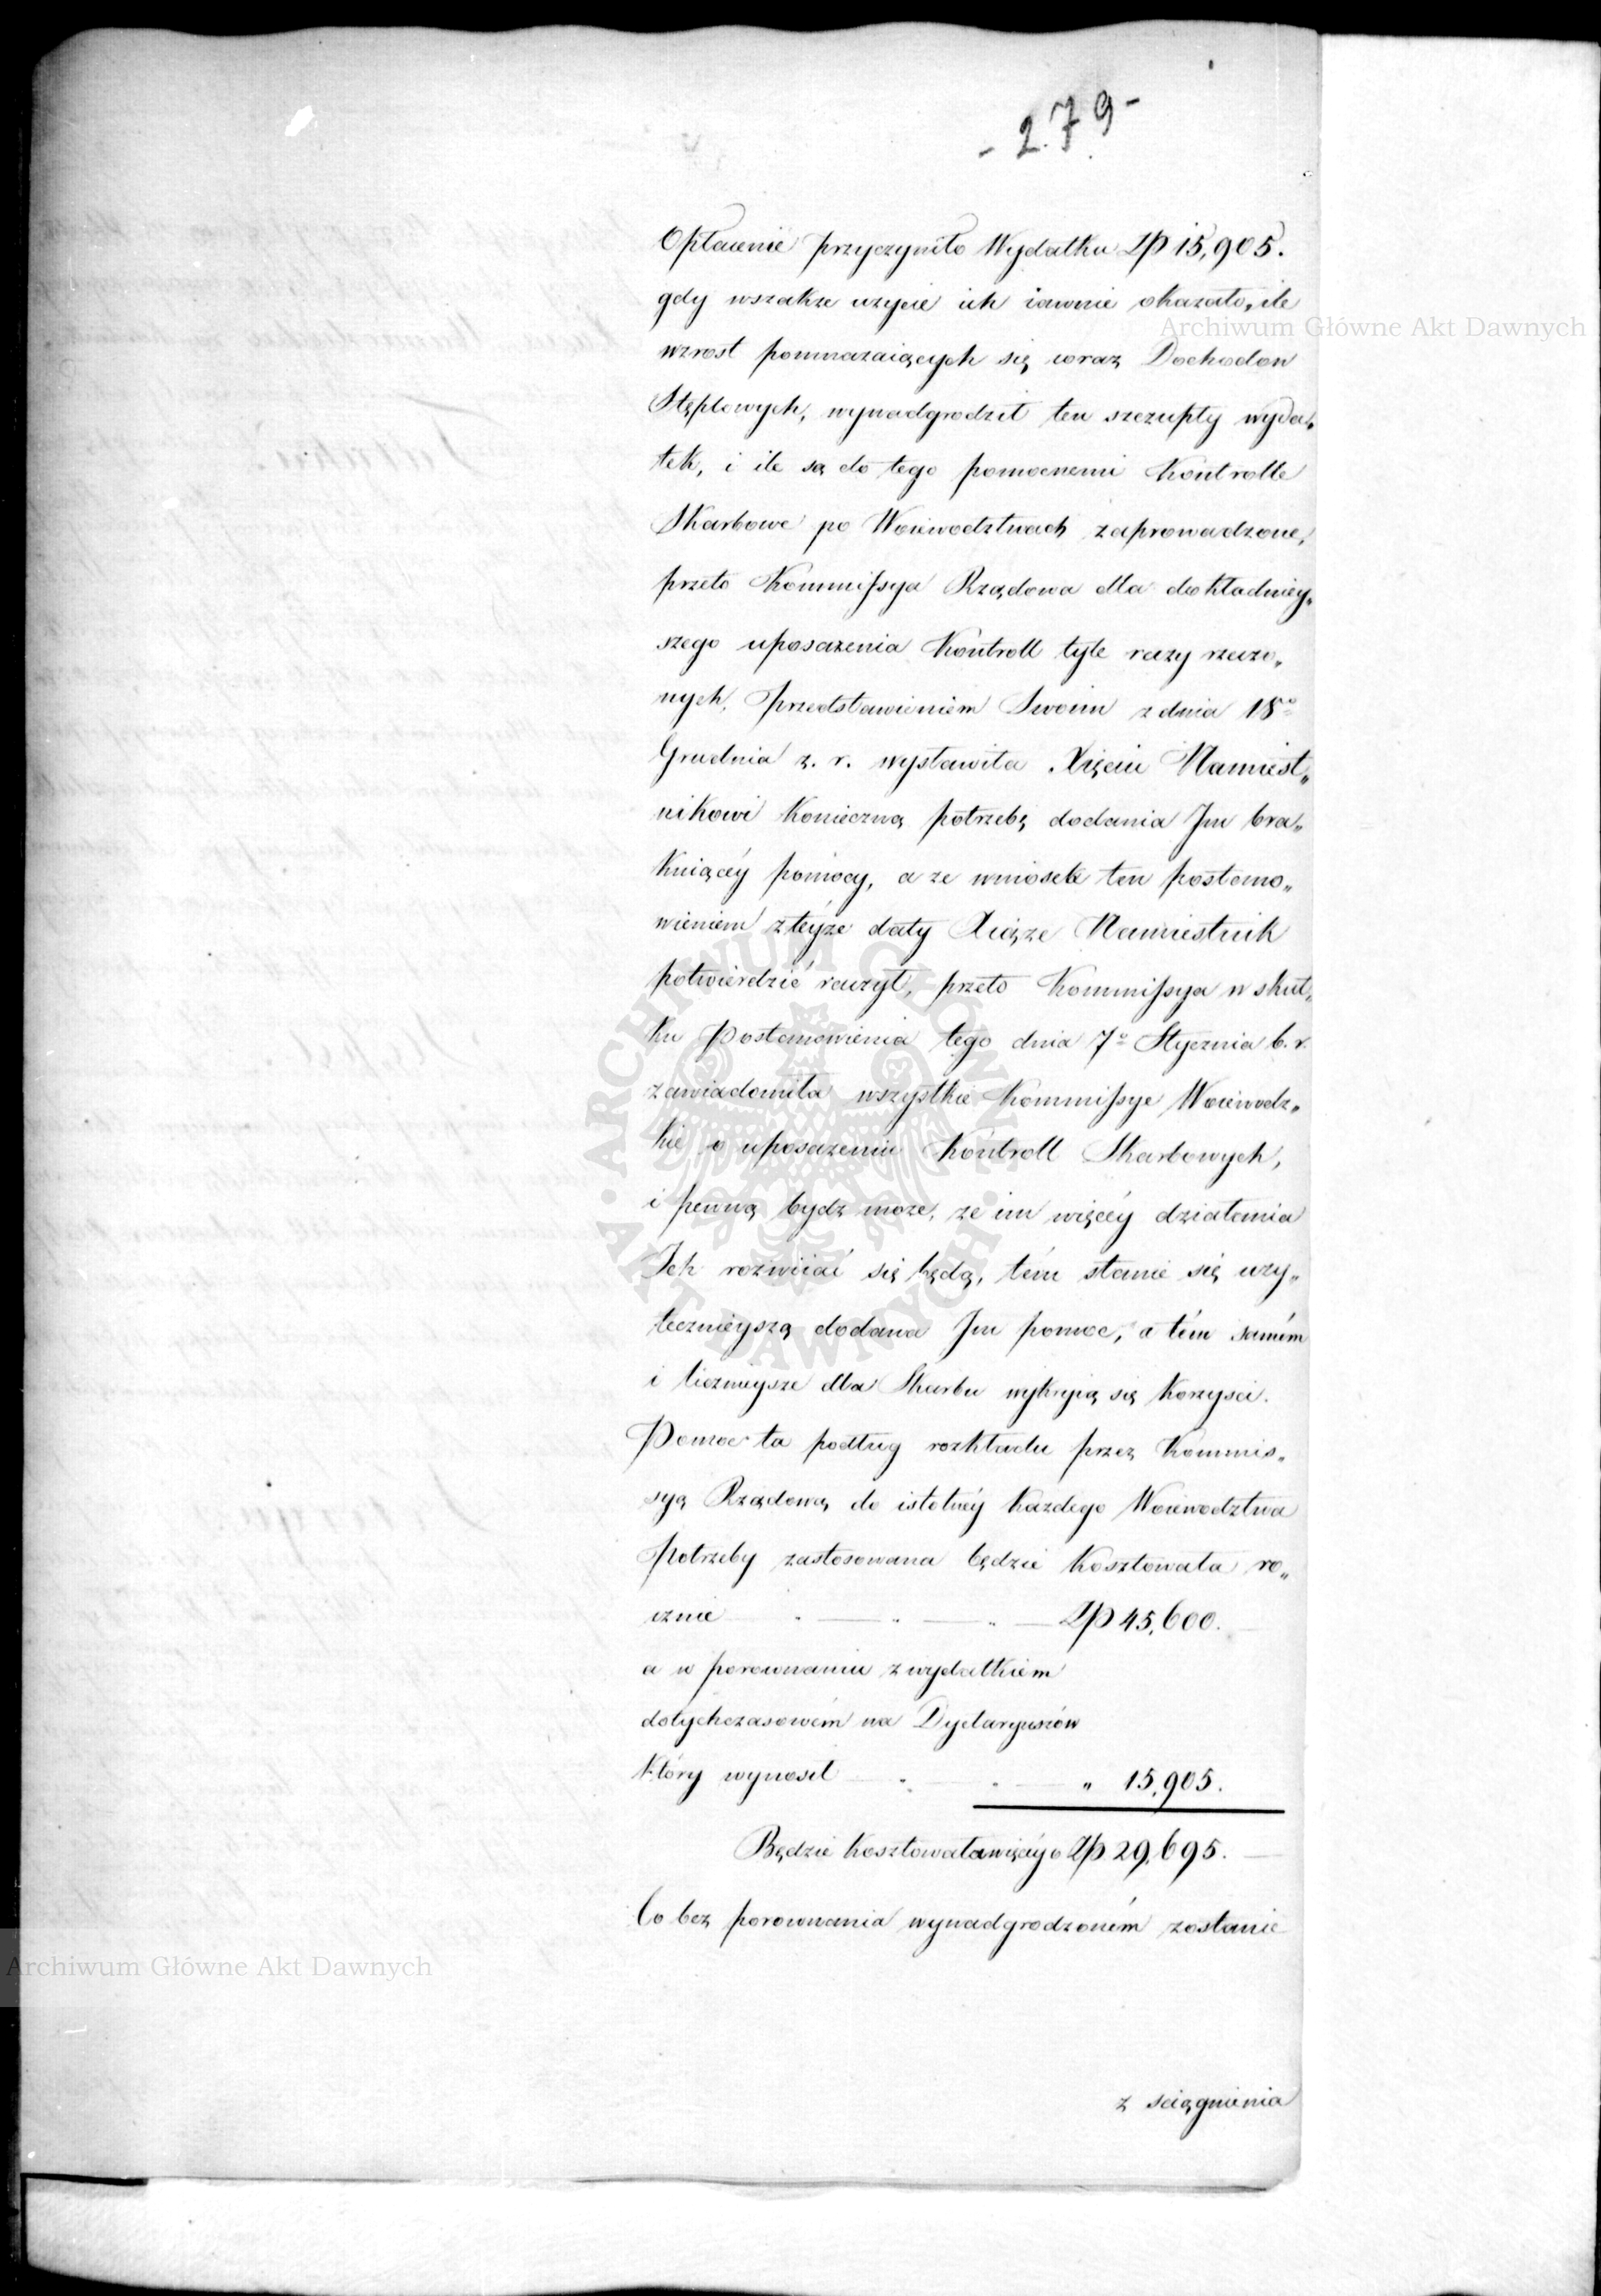 - 279 -
Opłacenie przyczyniło Wydatku Zp 15,905.
gdy wszakże użycie ich iawnie okazało, ile
wzrost pomnażaiących się coraz Dochodow
Stęplowych, wynadgrodził ten szczupły wyda„
tek, i ile są do tego pomocnemi Kontrolle
Skarbowe po Woiewodztwach zaprowadzone,
przeto Kommissya Rządowa dla dokładniey„
szego uposażenia Kontroll tyle razy rzeczo„
nych, Przedstawieniem Swoim z dnia 18º
Grudnia z. r. wystawiła Xięciu Namiest„
nikowi Konieczną potrzebę dodania Jm bra„
kuiącéy pomocy, a że wniosek ten postano„
wieniem z téyże daty Xiąże Namiestnik
potwierdzić raczył, przeto Kommissya w skut„
ku Postanowienia tego dnia 7º Stycznia b. r.
zawiadomiła wszystkie Kommissye Woiewodz„
kie o uposażeniu Kontroll Skarbowych,
i pewną bydz może, że im więcéy działania
Ich rozwiiać się będą, tém stanie się uży„
tecznieyszą dodana Jm pomoc, a tém samém
i licznieysze dla Skarbu wykryią się Korzysci.
Pomoc ta podług rozkładu przez Kommis„
syą Rządową do istotnéy każdego Woiewodztwa
Potrzeby zastosowana będzie Kosztowała ro„
cznie Zp 45,600.
a w porownaniu z wydatkiem
dotychczasowém na Dyetaryuszów
Który wynosił „ 15,905.
Będzie Kosztowała więcéy o Zp 29,695.
Co bez porownania wynadgrodzoném zostanie
z sciągnienia
Archiwum Główne Akt Dawnych
Archiwum Główne Akt Dawnych
ARCHIWUM GŁÓWNE • AKT DAWNYCH •